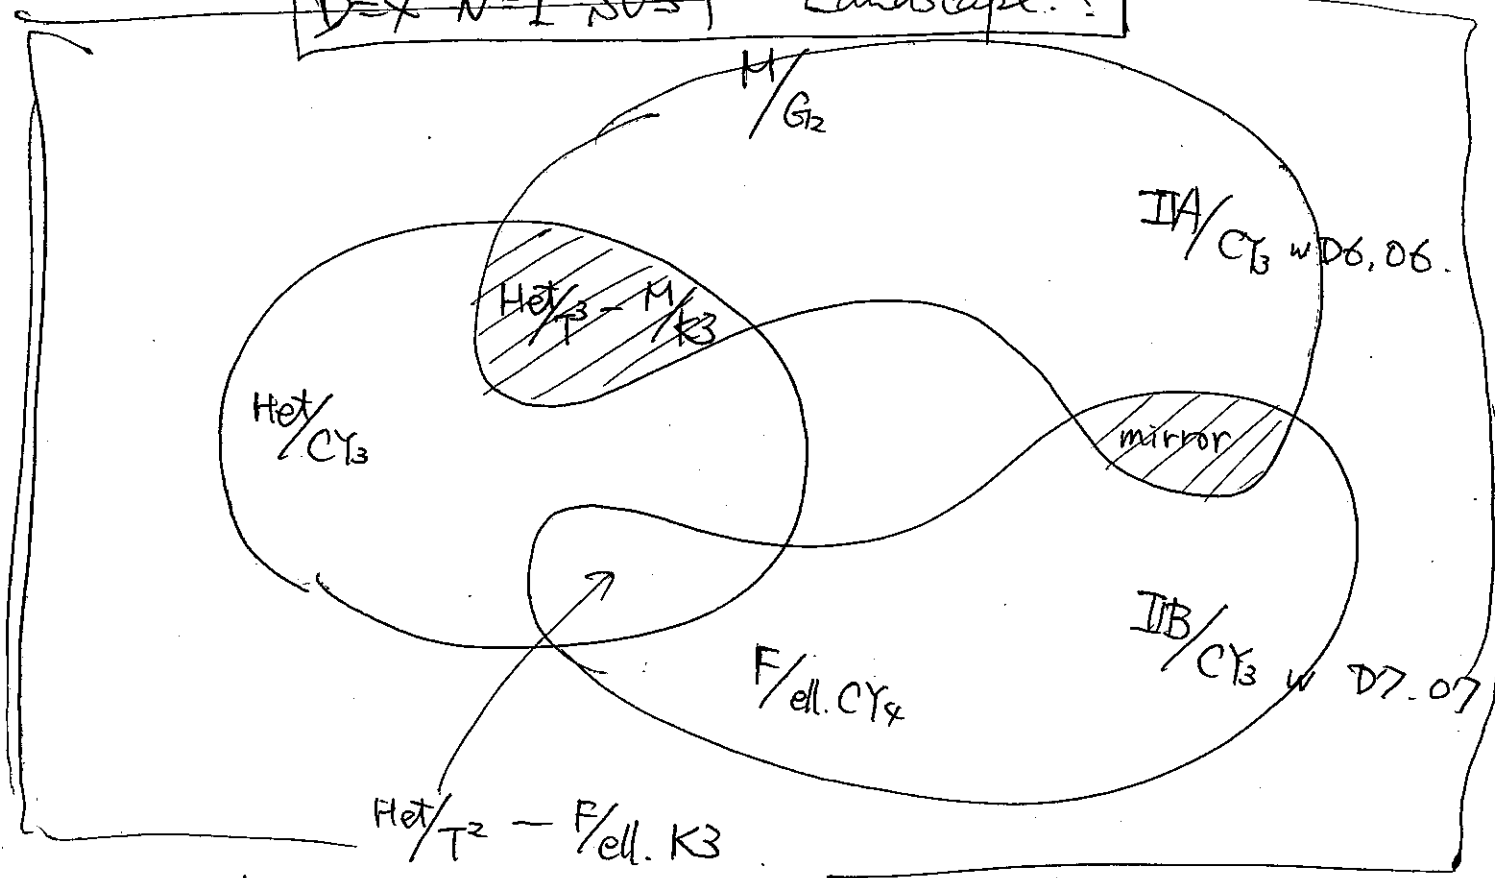 D=4 N=1 SUSY Landscape. ?
M/G₂
IIA/CY₃ w D6, O6.
Het/T³ – M/K3
Het/CY₃
mirror
IIB/CY₃ w D7. O7
F/ell. CY₄
Het/T² — F/ell. K3